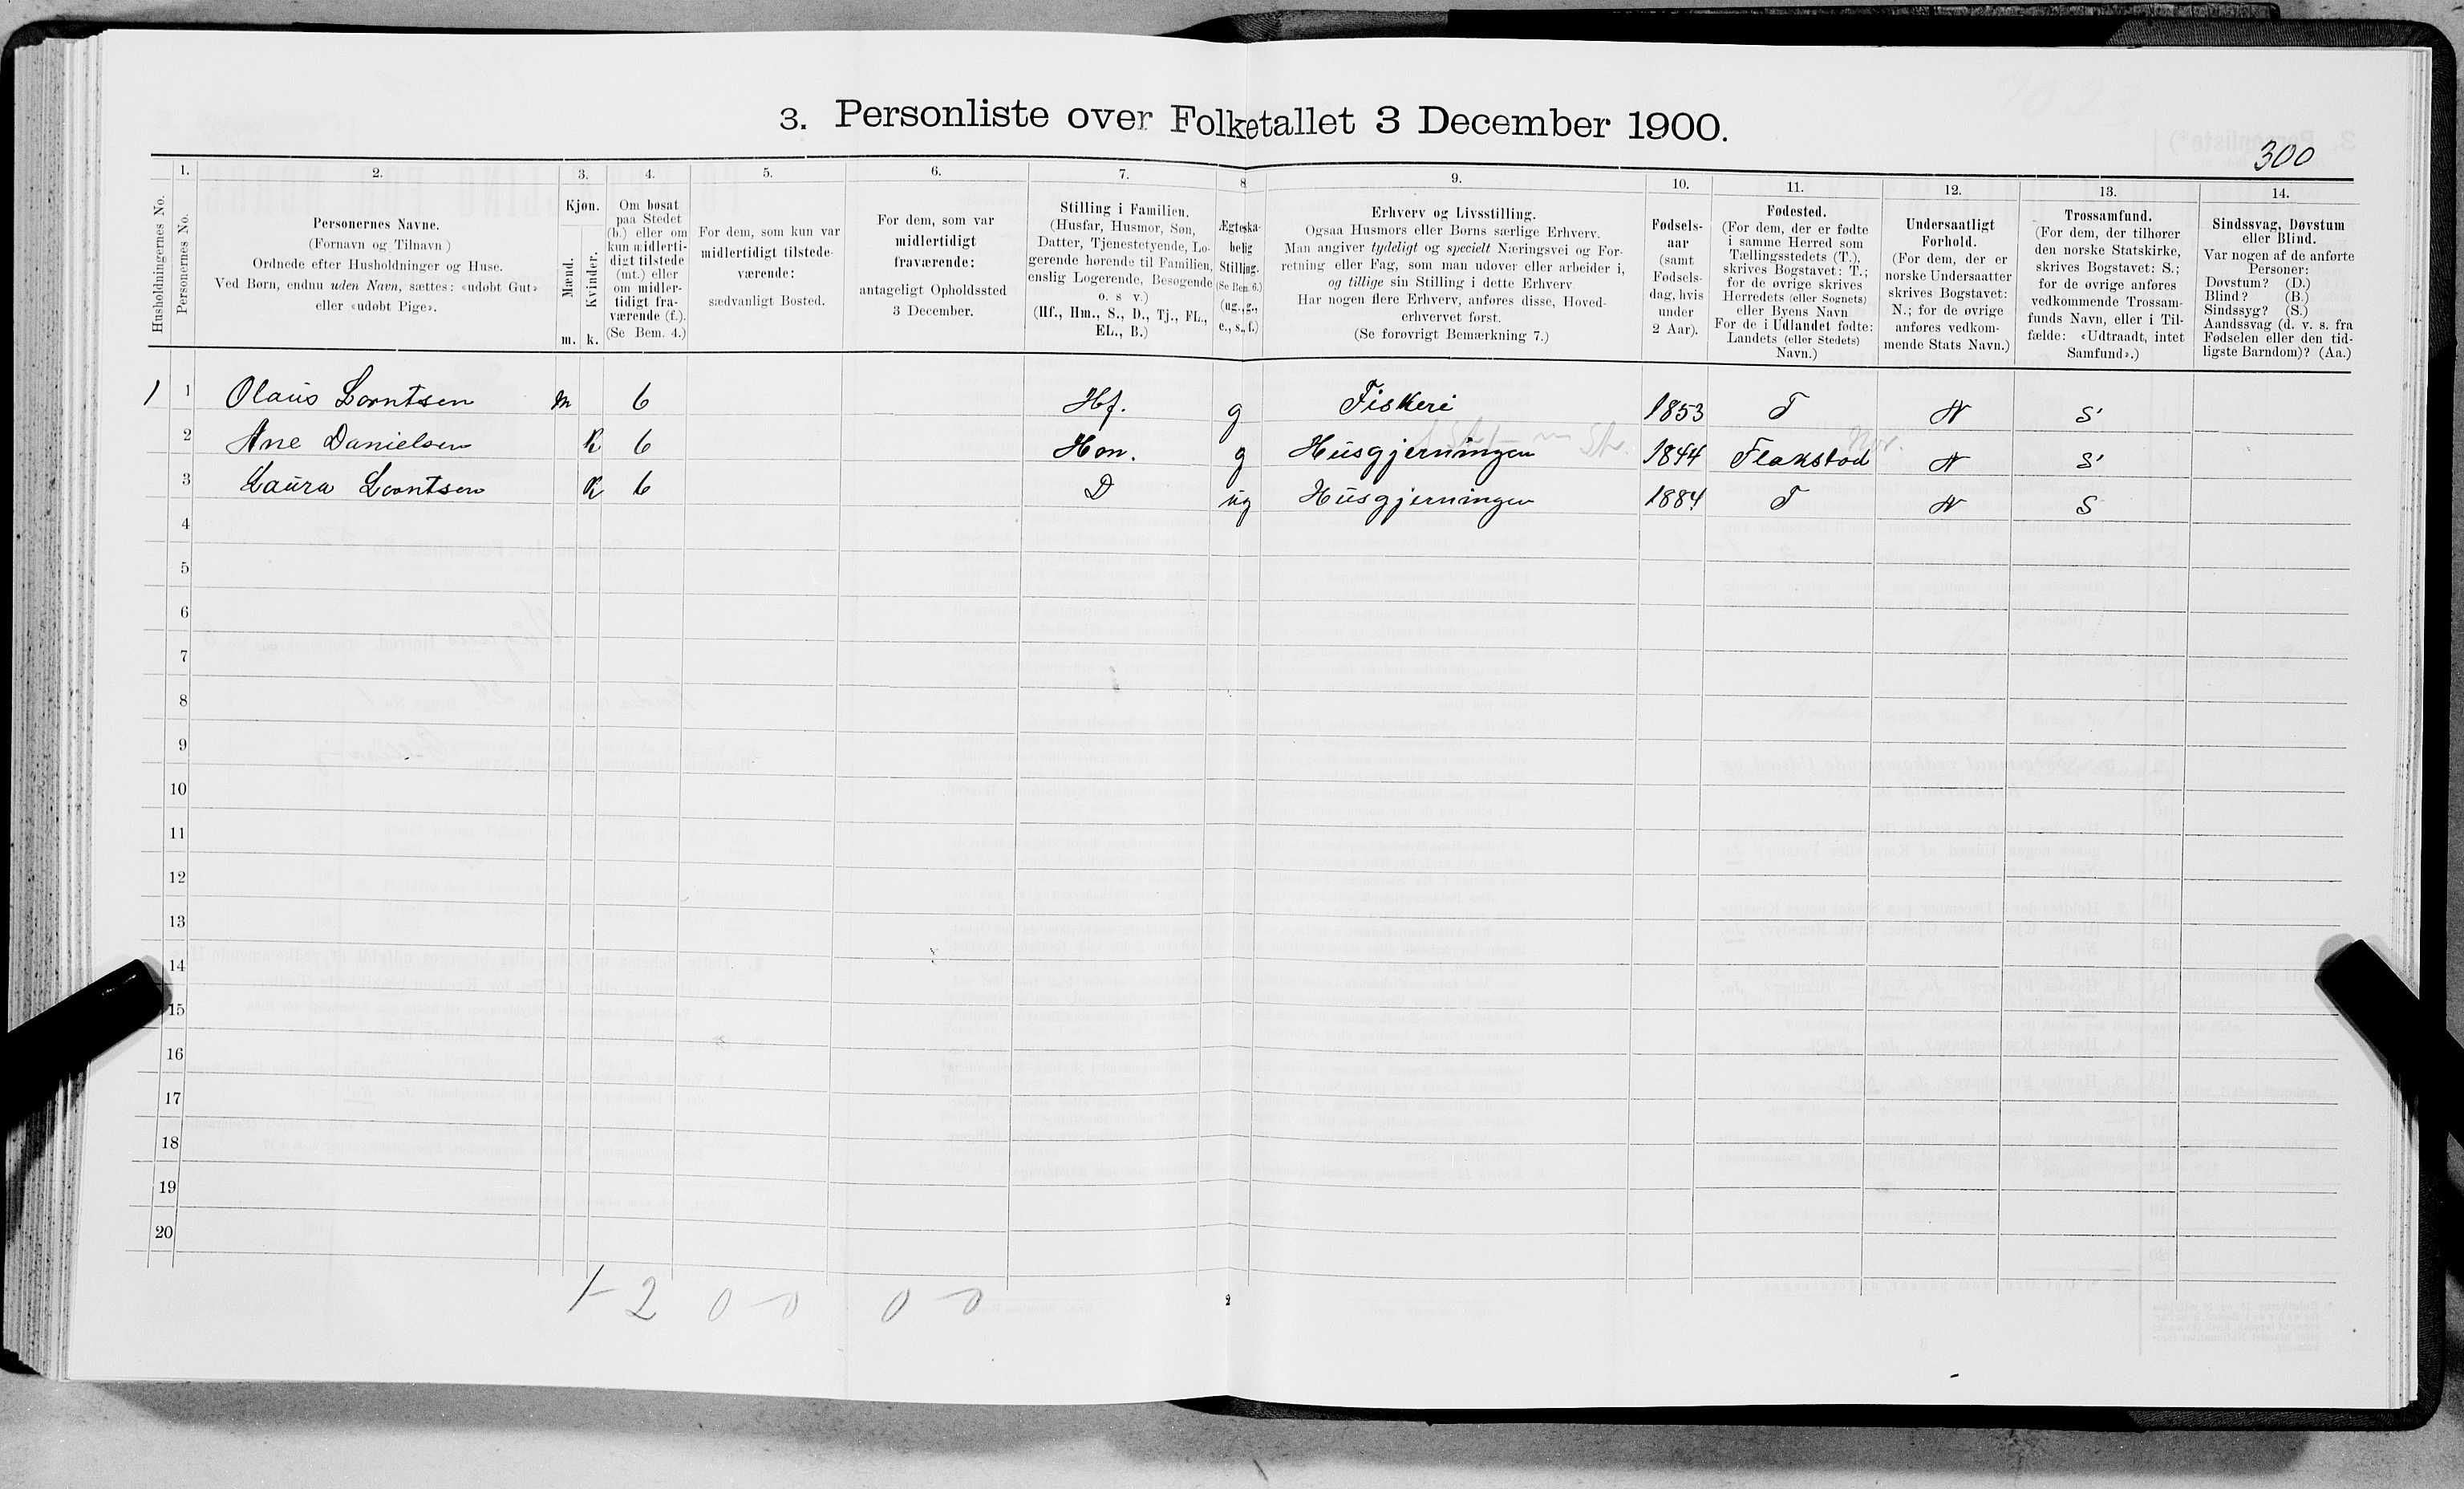 3. Personliste over Folketallet 3 December 1900.
300
Husholdningernes No.
1.
Personernes No.
2.
Personernes Navne.
(Fornavn og Tilnavn.)
Ordnede efter Husholdninger og Huse.
Ved Børn, endnu uden Navn, sættes: «udøbt Gut»
eller «udøbt Pige».
3.
Kjøn.
Mænd.
Kvinder.
m. k.
4.
Om bosat
paa Stedet
(b.) eller om
kun midlerti-
digt tilstede
(mt.) eller
om midler-
tidigt fra-
værende (f.).
(Se Bem. 4.)
5.
For dem, som kun var
midlertidigt tilstede-
værende:
sædvanligt Bosted.
6.
For dem, som var
midlertidigt
fraværende:
antageligt Opholdssted
3 December.
7.
Stilling i Familien.
(Husfar, Husmor, Søn,
Datter, Tjenestetyende, Lo-
gerende hørende til Familien,
enslig Logerende, Besøgende
o. s v.)
(Hf., Hm., S., D., Tj., FL.,
EL., B.)
8
Ægteska-
belig
Stilling.
(Se Bem. 6.)
(ug., g.,
e., s., f.)
9.
Erhverv og Livsstilling.
Ogsaa Husmors eller Børns særlige Erhverv.
Man angiver tydeligt og specielt Næringsvei og For-
retning eller Fag, som man udøver eller arbeider i,
og tillige sin Stilling i dette Erhverv
Har nogen flere Erhverv, anføres disse, Hoved-
erhvervet først.
(Se forøvrigt Bemærkning 7.)
10.
Fødsels-
aar
(samt
Fødsels-
dag, hvis
under
2 Aar).
11.
Fødested.
(For dem, der er fødte
i samme Herred som
Tællingsstedets (T.),
skrives Bogstavet: T.;
for de øvrige skrives
Herredets (eller Sognets)
eller Byens Navn
For de i Udlandet fødte:
Landets (eller Stedets)
Navn.)
12.
Undersaatligt
Forhold.
(For dem, der er
norske Undersaatter
skrives Bogstavet:
N.; for de øvrige
anføres vedkom-
mende Stats Navn.)
13.
Trossamfund.
(For dem, der tilhører
den norske Statskirke,
skrives Bogstavet: S.;
for de øvrige anføres
vedkommende Trossam-
funds Navn, eller i Til-
fælde: «Udtraadt, intet
Samfund».)
14.
Sindssvag, Døvstum
eller Blind.
Var nogen af de anførte
Personer:
Døvstum? (D.)
Blind? (B.)
Sindssyg? (S.)
Aandssvag (d. v. s. fra
Fødselen eller den tid-
ligste Barndom)? (Aa.)
1 1 Olaus Lorntsen m b Hf. g Fiskeri 1853 T N S
2 Ane Danielsen K b Hm. g Husgjerningen 1844 Flakstad N S
3 Laura Lorntsen K b D ug Husgjerningen 1884 T N S
4
5
6
7
8
9
10
11
12
13
14
15
16
17
18
19
20
1 - 2 0 - 0 0 - 0
2